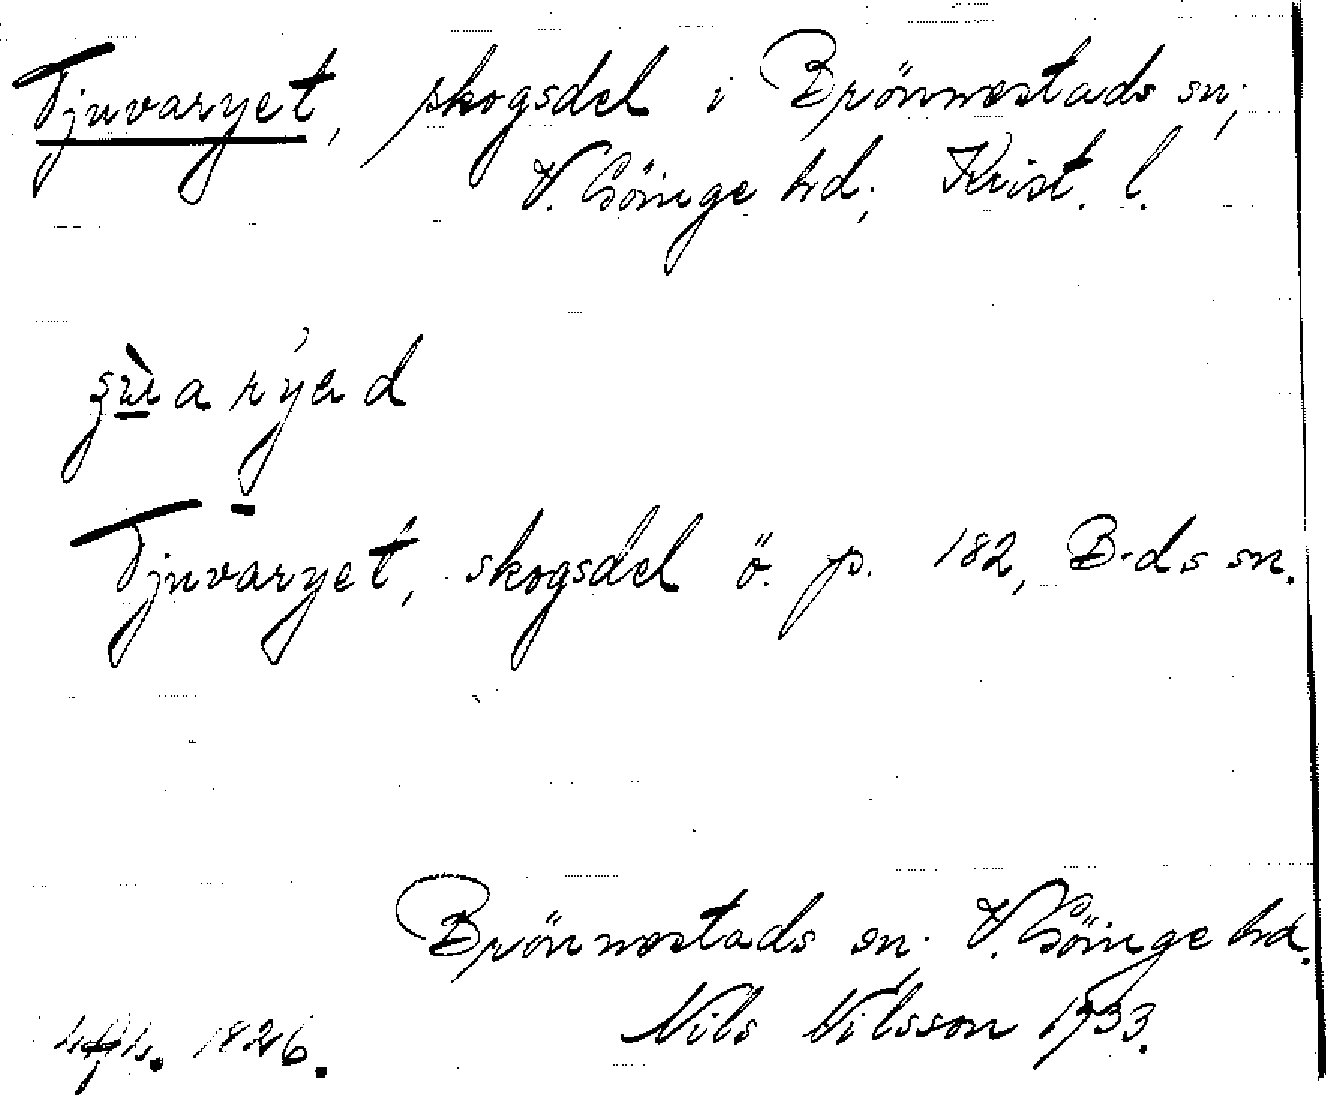 Tjuvaryet, skogsdel i Brönnestads sn;
V. Göinge hd; Krist. l.
Tjuvaryet, skogsdel ö. p. 182, B-ds sn.
Brönnestads sn. V. Göinge hd.
Nils Nilsson 1933.
1826.